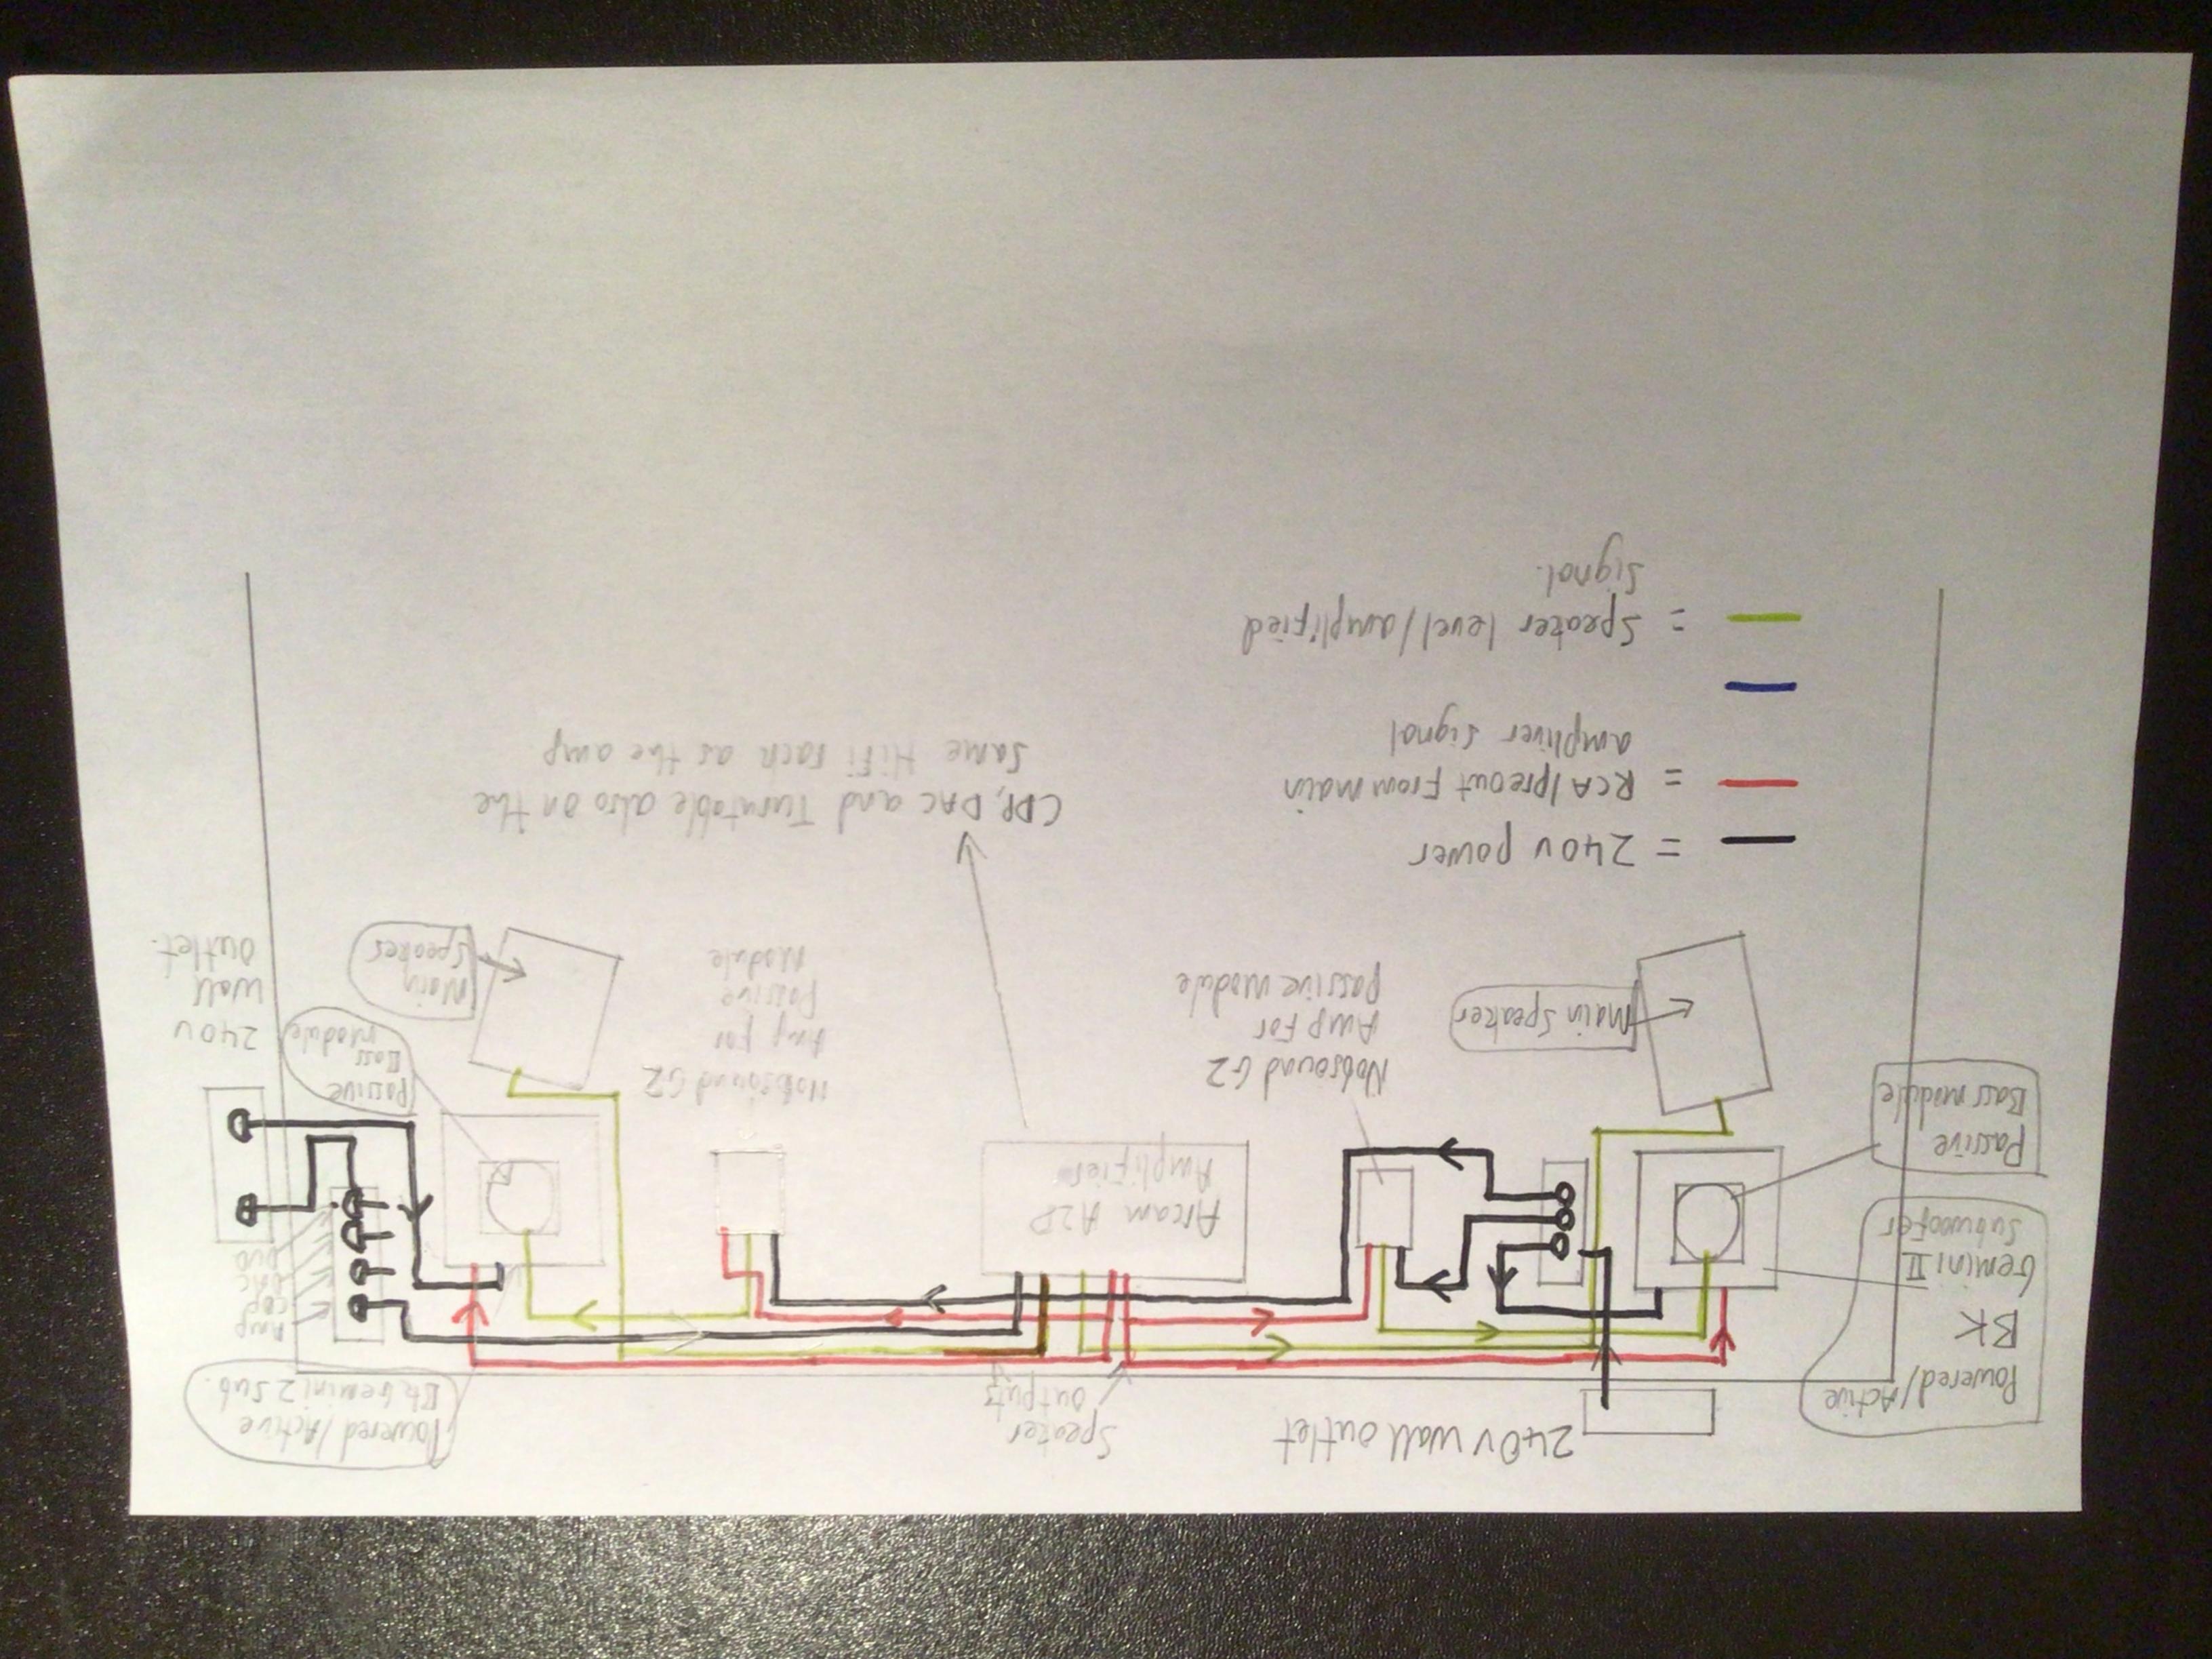 240v wall outlet
Speaker
outputs
Powered/Active
BK
Gemini II
Subwoofer
Passive
Bass module
Powered/Active
Bk Gemini 2 Sub.
Amp
CDP
DAC
DVD
Arcam
Amplifier
Main Speaker
Nobsound G2
Amp For
passive module
Nobsound G2
Amp For
Passive
Module
Passive
Bass
Module
Main
Speaker
240v
wall
outlet.
= 240v power
= RCA/preout From main
ampliver signal
= Speaker level/amplified
signal.
CDP, DAC and Turntable also on the
same HiFi rack as the amp